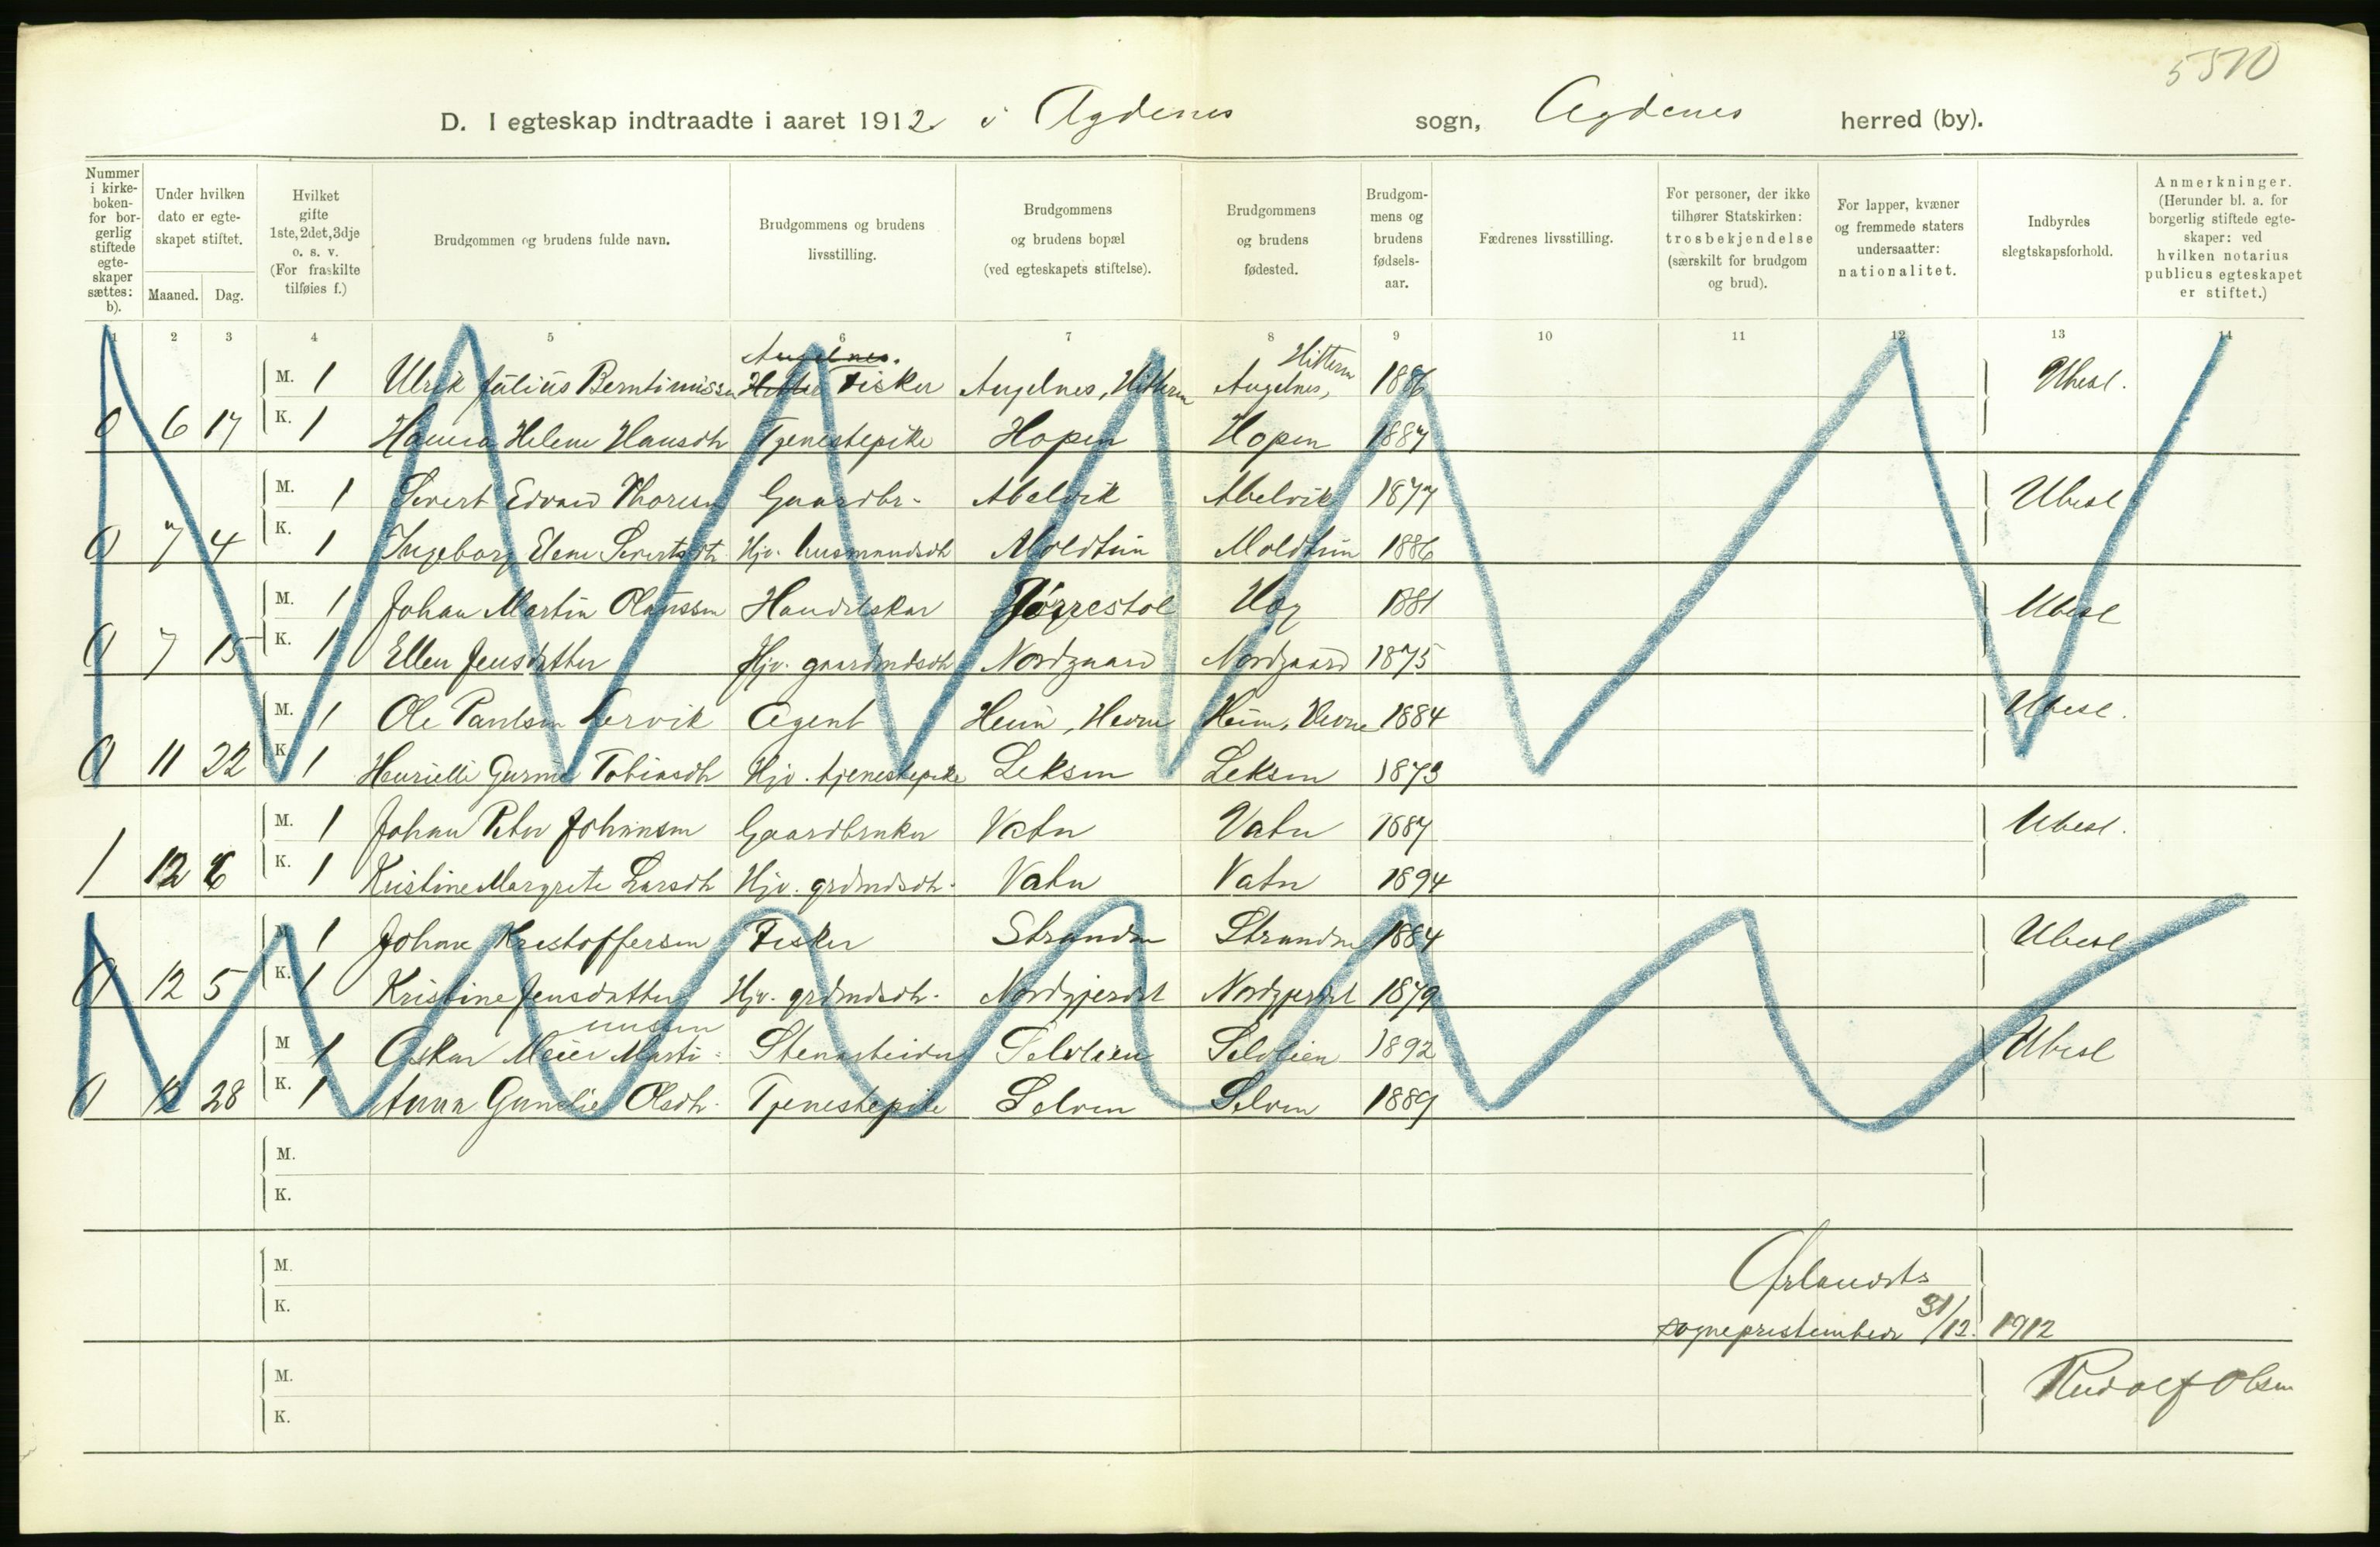 5510
D. I egteskap indtraadte i aaret 1912 i Agdenes sogn, Agdenes herred (by).
Nummer i kirke-boken- for bor-gerlig stiftede egte-skaper sættes: b).
Under hvilken dato er egte-skapet stiftet.
Maaned. Dag.
Hvilket gifte 1ste, 2det, 3dje o. s. v. (For fraskilte tilføies f.)
Brudgommen og brudens fulde navn.
Brudgommens og brudens livsstilling.
Brudgommens og brudens bopæl (ved egteskapets stiftelse).
Brudgommens og brudens fødested.
Brudgom-mens og brudens fødsels-aar.
Fædrenes livsstilling.
For personer, der ikke tilhører Statskirken: trosbekjendelse (særskilt for brudgom og brud).
For lapper, kvæner og fremmede staters undersaatter: nationalitet.
Indbyrdes slegtskapsforhold.
Anmerkninger. (Herunder bl. a. for borgerlig stiftede egte-skaper: ved hvilken notarius publicus egteskapet er stiftet.)
1 2 3 4 5 6 7 8 9 10 11 12 13 14
Angelnes. Hittern
M. 1 Ulrik Julius Berntinussen Fisker Angelnes, Hittern Angelnes, 1886 Ubesl.
0 6 17 K. 1 Hanna Helene Hansdtr Tjenestepike Hopen Hopen 1887
M. 1 Sivert Edvard Thoresen Gaardbr. Abelvik Abelvik 1877 Ubesl
0 7 4 K. 1 Ingeborg Elene Sivertsdtr Hjv. husmandsdtr Moldtun Moldtun 1886
M. 1 Johan Martin Olaussen Handelskar Hog 1881 Ubesl
0 7 15 K. 1 Ellen Jensdatter Hjv. gaardmdsdtr Nordgaard Nordgaard 1875
M. 1 Ole Paulsen Lervik Agent Heim, Hevne Heim, Hevne 1884 Ubesl.
0 11 22 K. 1 Tobiasdtr Hjv. tjenestepike Leksen Leksen 1873
M. 1 Johan Peter Johansen Gaardbruker Vatn Vatn 1887 Ubesl.
1 12 6 K. 1 Kristine Margrete Larsdtr Hjv. grdmdsdtr. Vatn Vatn 1894
M. 1 Johan Kristoffersen Fisker Stranden Stranden 1884 Ubesl
0 12 5 K. 1 Kristine Jensdatter Hjv. grdmdsdtr. Nordgjerdet Nordgjerdet 1879
nussen
M 1 Oskar Meier Marti- Stenarbeider Selvlien Selvlien 1892 Ubesl
0 12 28 K. 1 Anna Gunelie Olsdtr. Tjenestepike Selven Selven 1889
M.
K.
M.
Ørlandets
K.
sogneprestembede 31/12. 1912
M.
Rudolf Olsen
K.